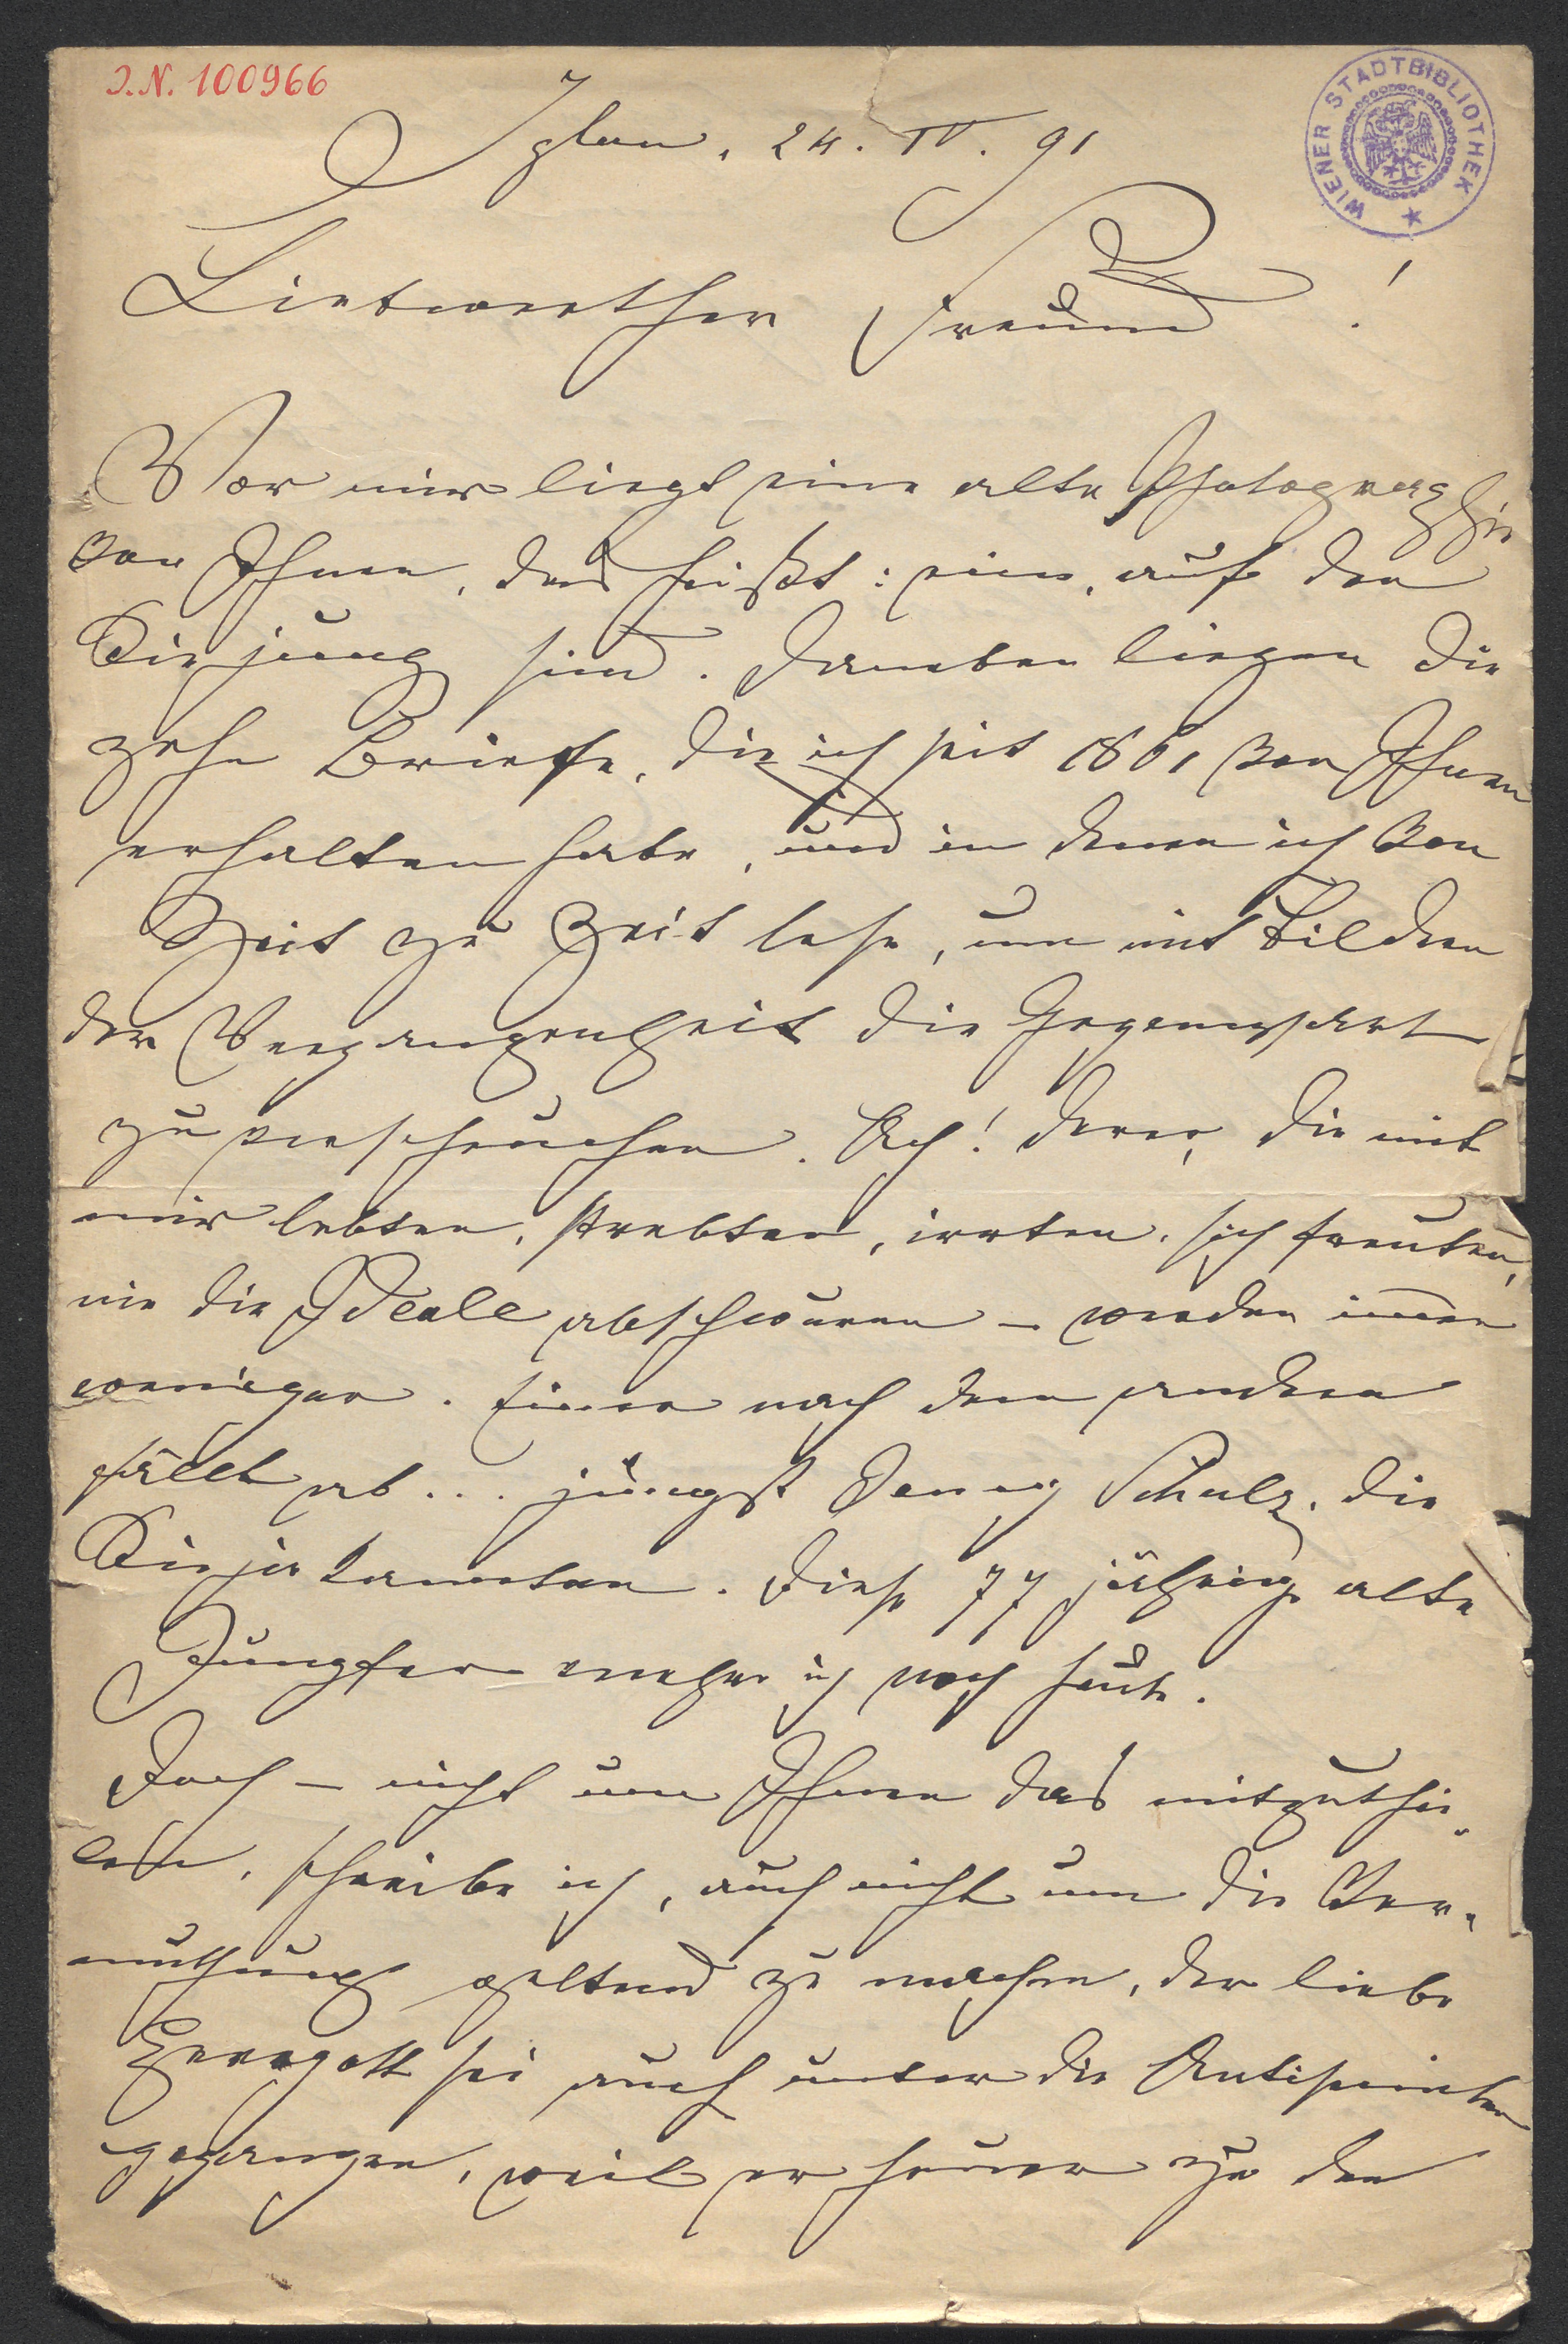 J.N. 100966
WIENER STADTBIBLIOTHEK
Iglau, 24. IV. 91
Liebwerther Freund!
Vor mir liegt eine alte Photographie
von Ihnen, das heißt: eine, auf der
Sie jung sind. Daneben liegen die
zehn Briefe, die ich seit 1861 von Ihnen
erhalten habe, und in denen ich von
Zeit zu Zeit lese, um mit Bildern
der Vergangenheit die Gegenwart
zu verscheuchen. Ach! derer, die mit
mir lebten, strebten, irrten, sich freuten,
nie die Ideale abschwuren – werden immer
weniger. Einer nach dem andern
fällt ab... jüngst Schulz, die
Sie ja kannten. Diese 77 jährige alte
Jungfer verehre ich noch heute.
Doch – nicht um Ihnen das mitzuthei-
len, schreibe ich, auch nicht um die Ver-
muthung geltend zu machen, der liebe
Herrgott sei auch unter die Antisemiten
gegangen, weil er heuer zu den